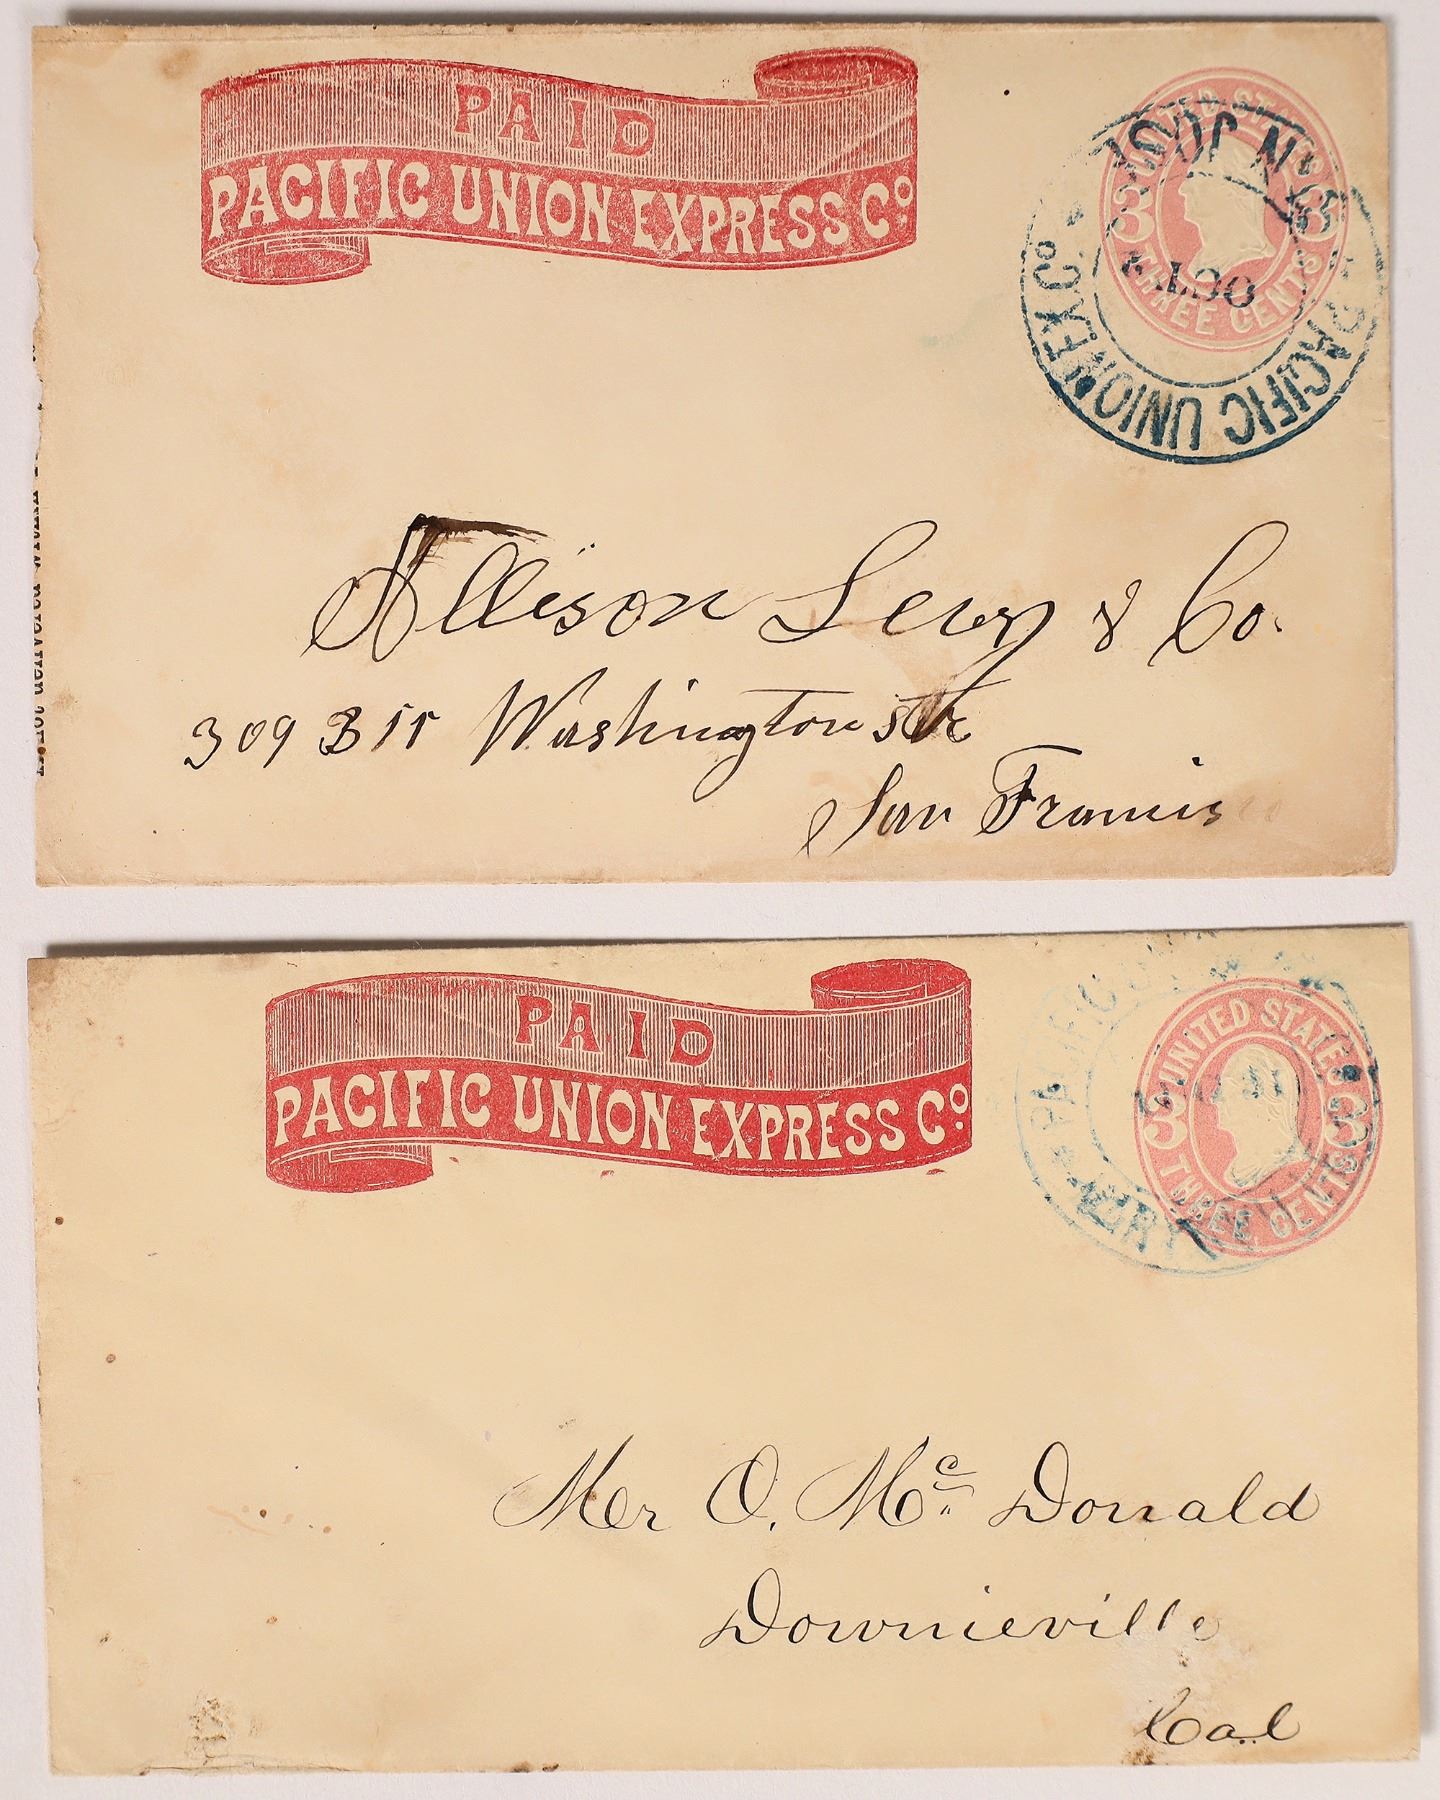 PAID
PACIFIC UNION EXPRESS Co.
UNITED STATES
3 3
THREE CENTS
PACIFIC UNION EX Co.
OCT
Allison Levy & Co.
309 311 Washington str
San Francisco
If not delivered within
PAID
PACIFIC UNION EXPRESS Co.
UNITED STATES
3 3
THREE CENTS
PACIFIC UNION
Mer O. Mc Donald
Downieville
Cal